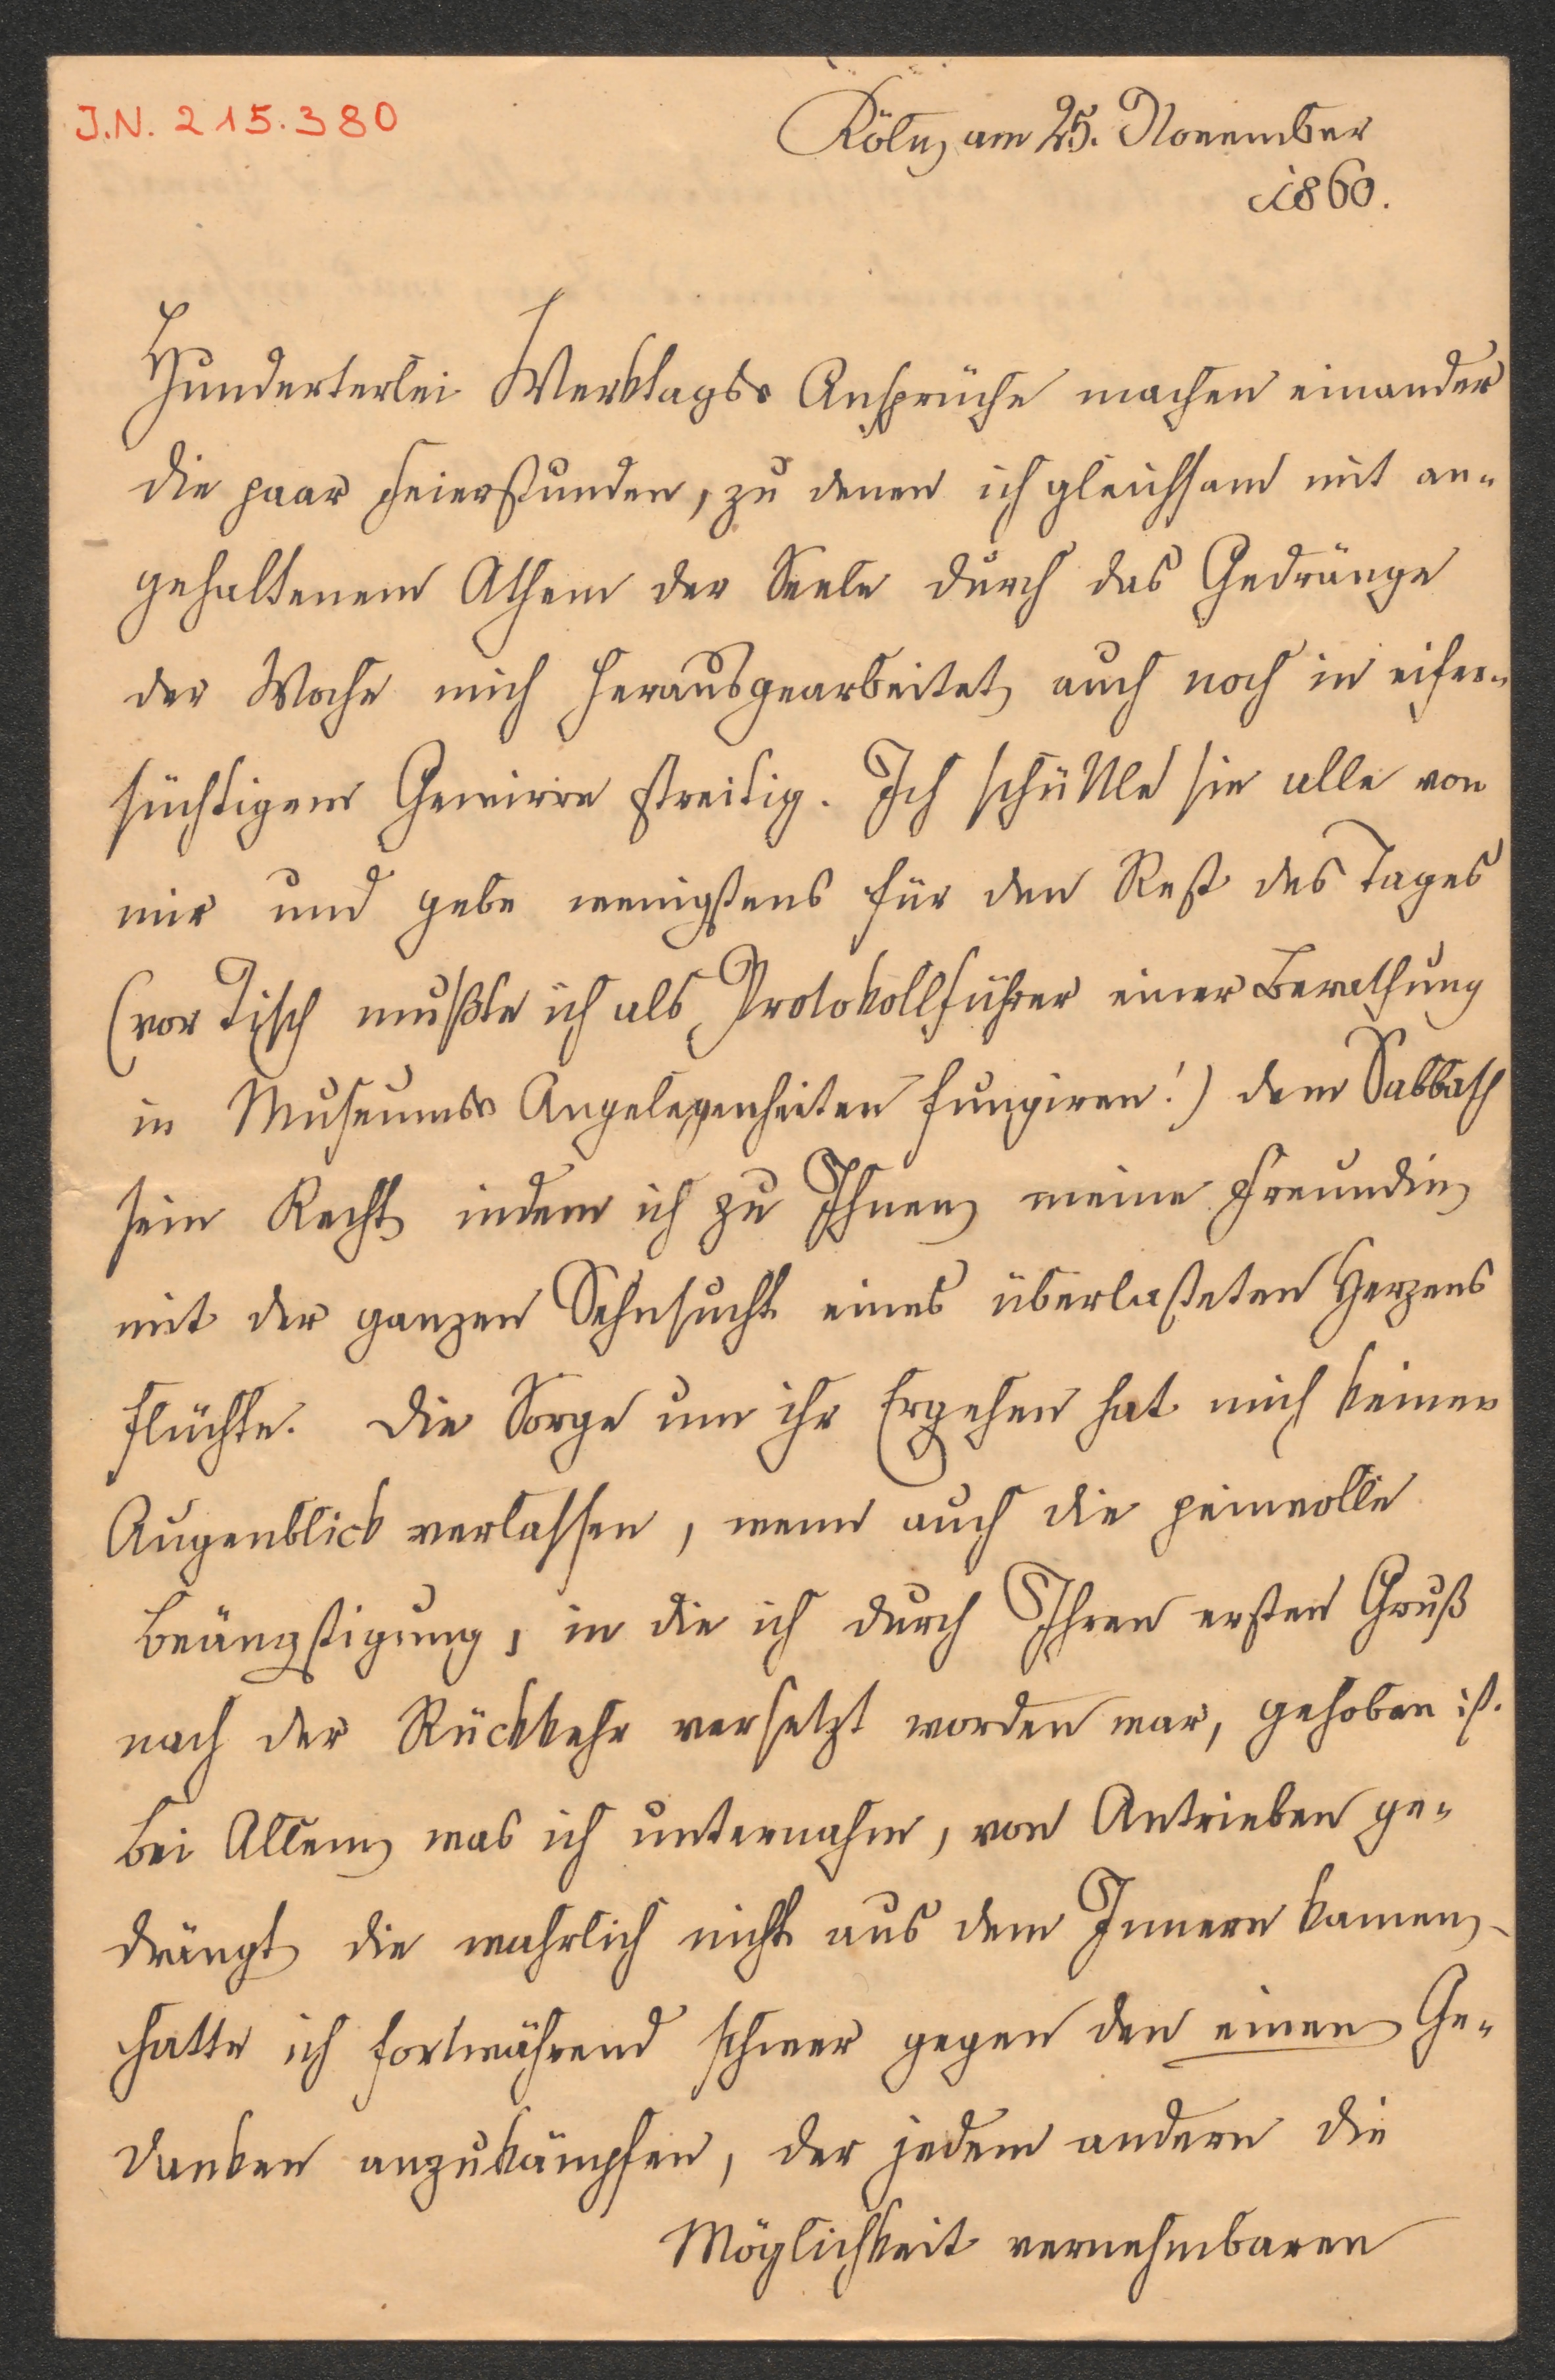 J.N. 215.380
Köln, am 25. November
1860.
Hunderterlei Werktags-Ansprüche machen einander
die paar Feierstunden, zu denen ich gleichsam mit an-
gehaltenem Athem der Seele durch das Gedränge
der Woche mich herausgearbeitet, auch noch in eifer-
süchtigem Gewirre streitig. Ich schüttle sie alle von
mir und gebe wenigstens für den Rest des Tages
(vor Tisch mußte ich als Protokollführer einer Berathung
in Museums-Angelegenheiten fungiren!) dem Sabbath
sein Recht, indem ich zu Ihnen, meine Freundin,
mit der ganzen Sehnsucht eines überlasteten Herzens
flüchte. Die Sorge um ihr Ergehen hat mich keinen
Augenblick verlassen, wenn auch die peinvolle
Beängstigung, in die ich durch Ihren ersten Gruß
nach der Rückkehr versetzt worden war, gehoben ist.
Bei Allem, was ich unternahm, von Antrieben ge-
drängt, die wahrlich nicht aus dem Innern kamen,
hatte ich fortwährend schwer gegen den einen Ge-
danken anzukämpfen, der jedem andern die
Möglichkeit vernehmbaren